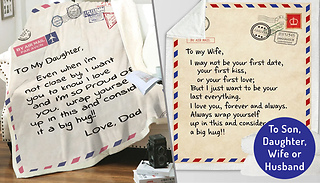 BY AIR MAIL
To My Daughter,
Even when i'm
not close by. I want
you to know I love
and i'm so Proud of
you. wrap yourself
up in this and consid
it a big hug!!
Love, Dad
To my Wife,
I may not be your first date,
your first kiss,
or your first love;
But I just want to be your
last everything.
I love you, forever and always.
Always wrap yourself
up in this and consider
a big hug!!
To Son,
Daughter,
Wife or
Husband